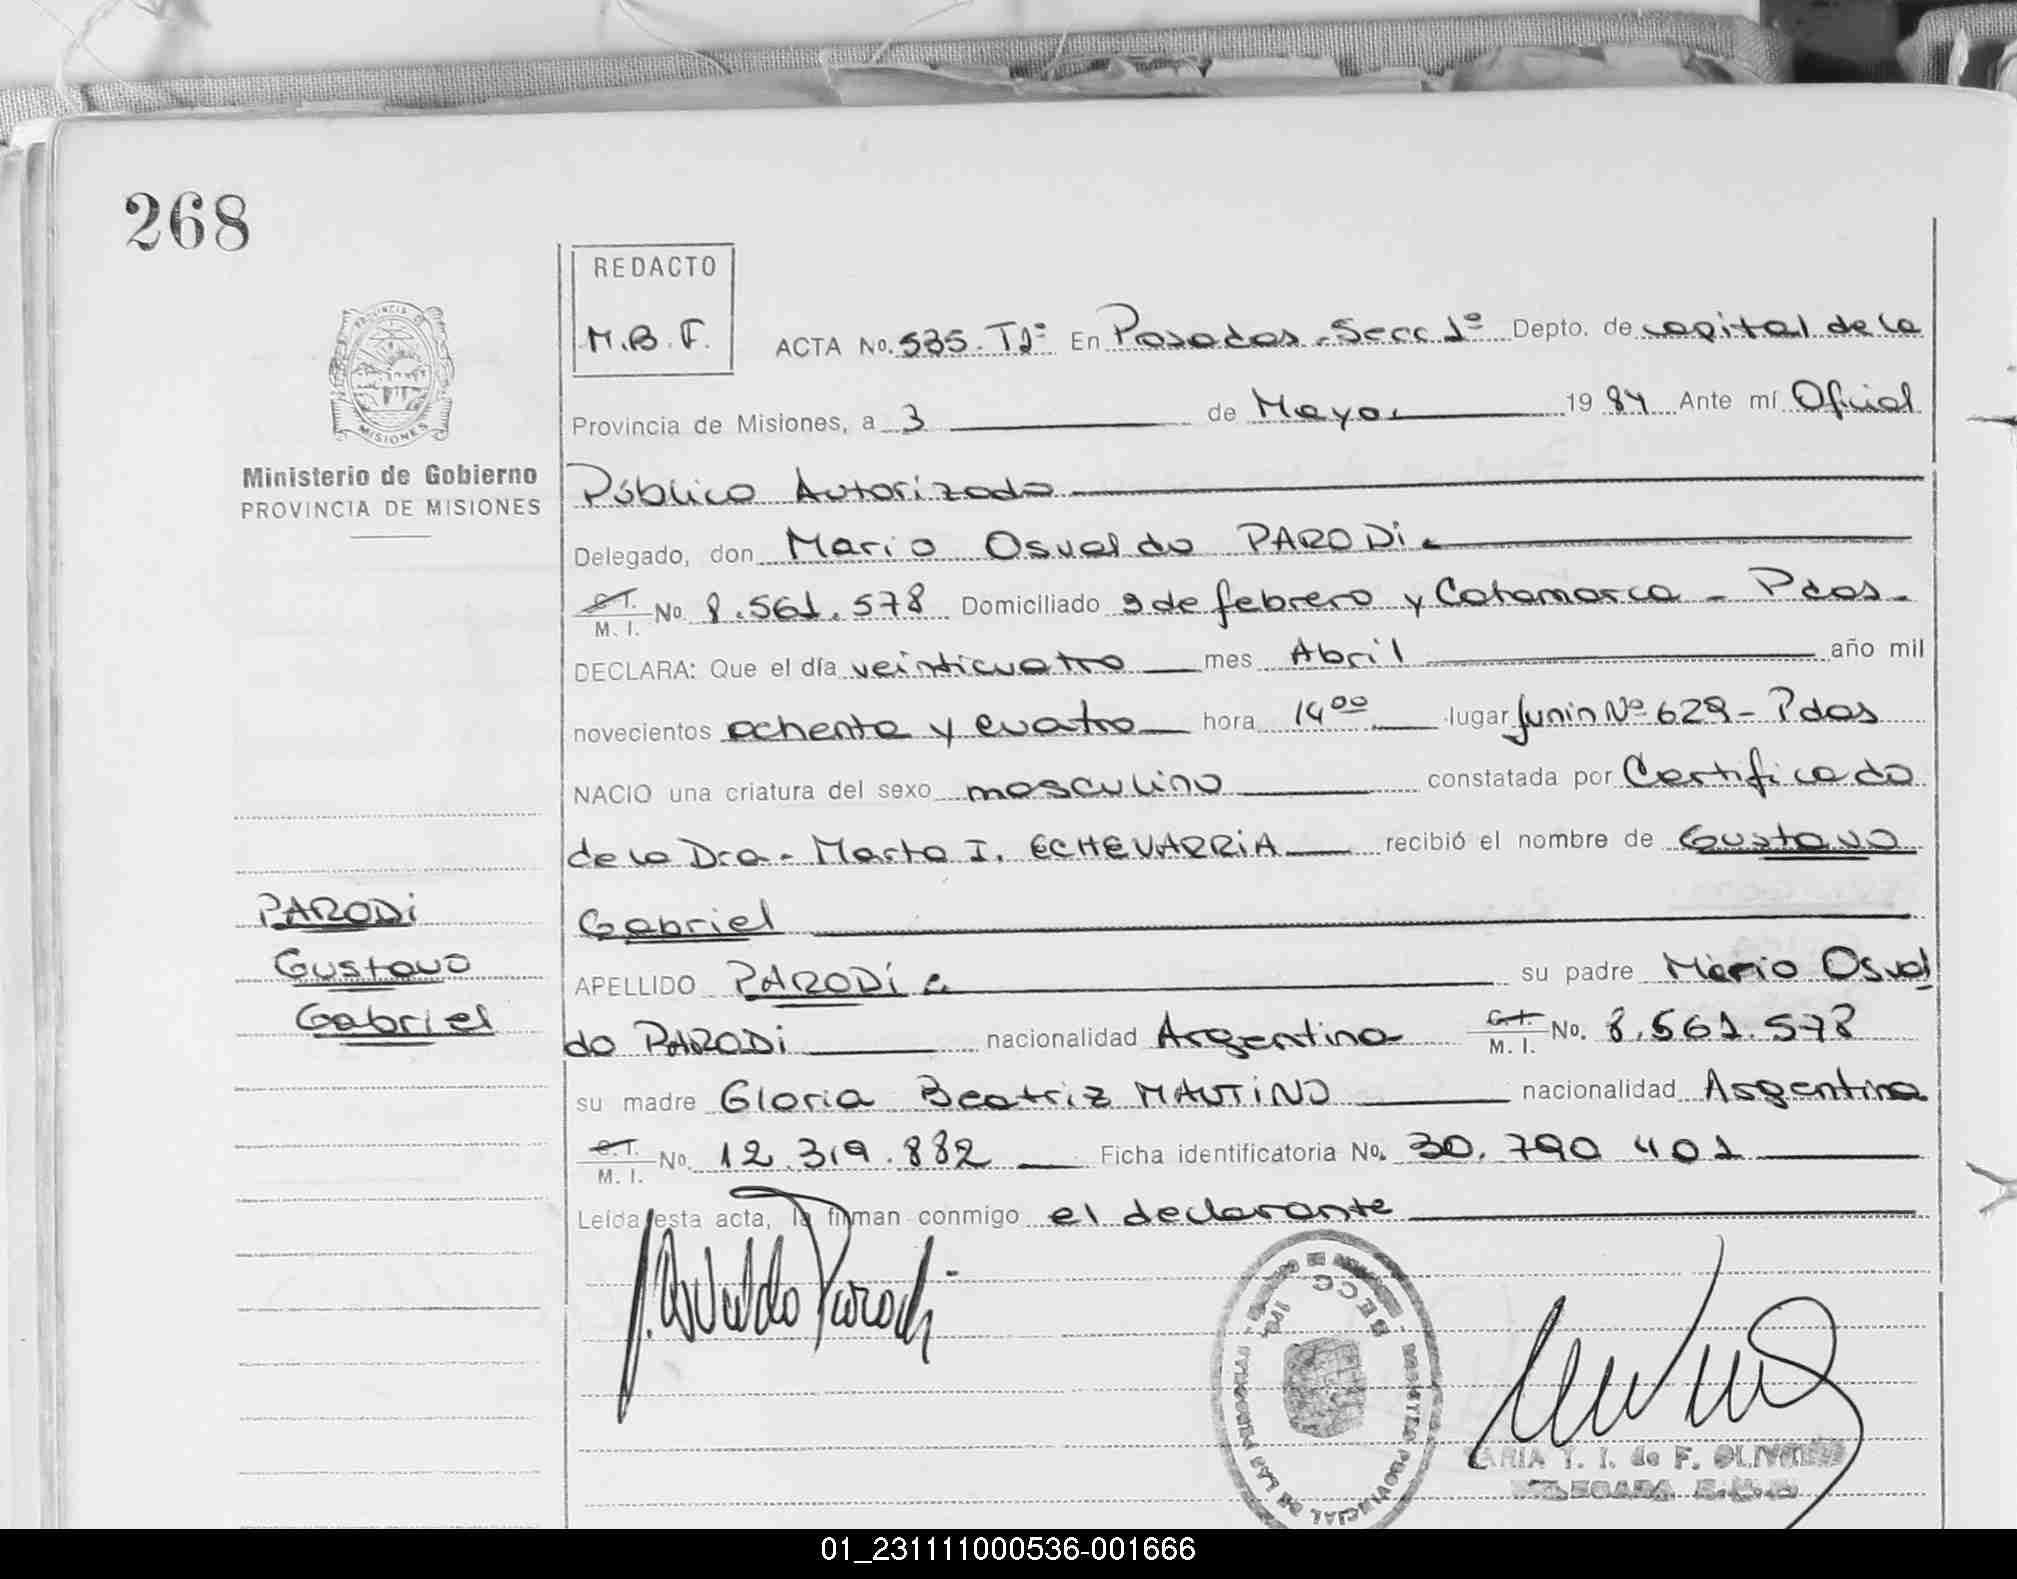 268
PROVINCIA DE
MISIONES
Ministerio de Gobierno
PROVINCIA DE MISIONES
REDACTO
M.B.F.
ACTA No. 535. T2º En Posadas - Secc 1º Depto. de capital de la
Provincia de Misiones, a 3 de Mayo. 1984 Ante mí Oficial
Público Autorizado
Delegado, don Mario Osvaldo PARODi.
C.I.
M. I. No. 8.561.578 Domiciliado 9 de febrero y Catamarca - Pdas.
DECLARA: Que el día veinticuatro mes Abril año mil
novecientos ochenta y cuatro hora 14 00 lugar Junin Nº 629 - Pdas
NACIO una criatura del sexo masculino constatada por Certificado
de la Dra. Marta I. ECHEVARRiA recibió el nombre de Gustavo
Gabriel
PARODi
Gustavo
Gabriel
APELLIDO PARODi su padre Mario Osval
do PARODi nacionalidad Argentina C.I. M. I. No. 8.561.578
su madre Gloria Beatriz MAUTiNO nacionalidad Argentina
C.I.
M. I. No. 12.319.882 Ficha identificatoria No. 30.790 401
Leída esta acta, la firman conmigo el declarante
Osvaldo Parodi
SECC 1ra
ARIA T. I. de F. OLIVEIRA
DELEGADA
01_231111000536-001666